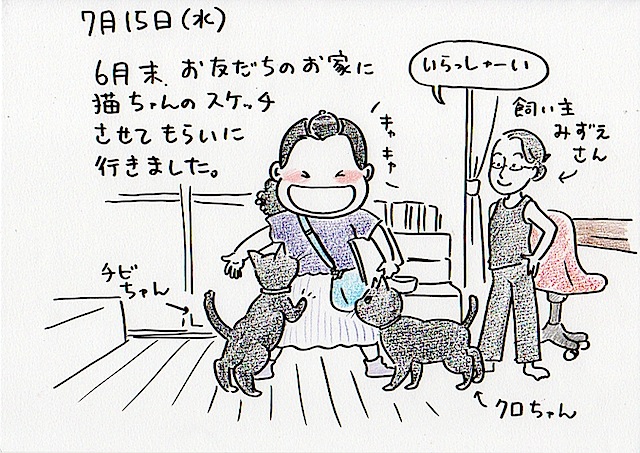 7月15日(水)
6月末、お友だちのお家に
猫ちゃんのスケッチ
させてもらいに
行きました。
いらっしゃーい
キャ
キャ
飼い主
みずえ
さん
チビ
ちゃん
クロちゃん